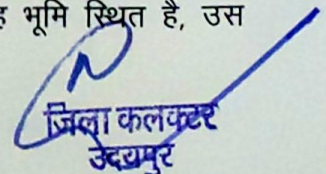 भूमि स्थित है, उस
जिला कलक्टर
उदयपुर